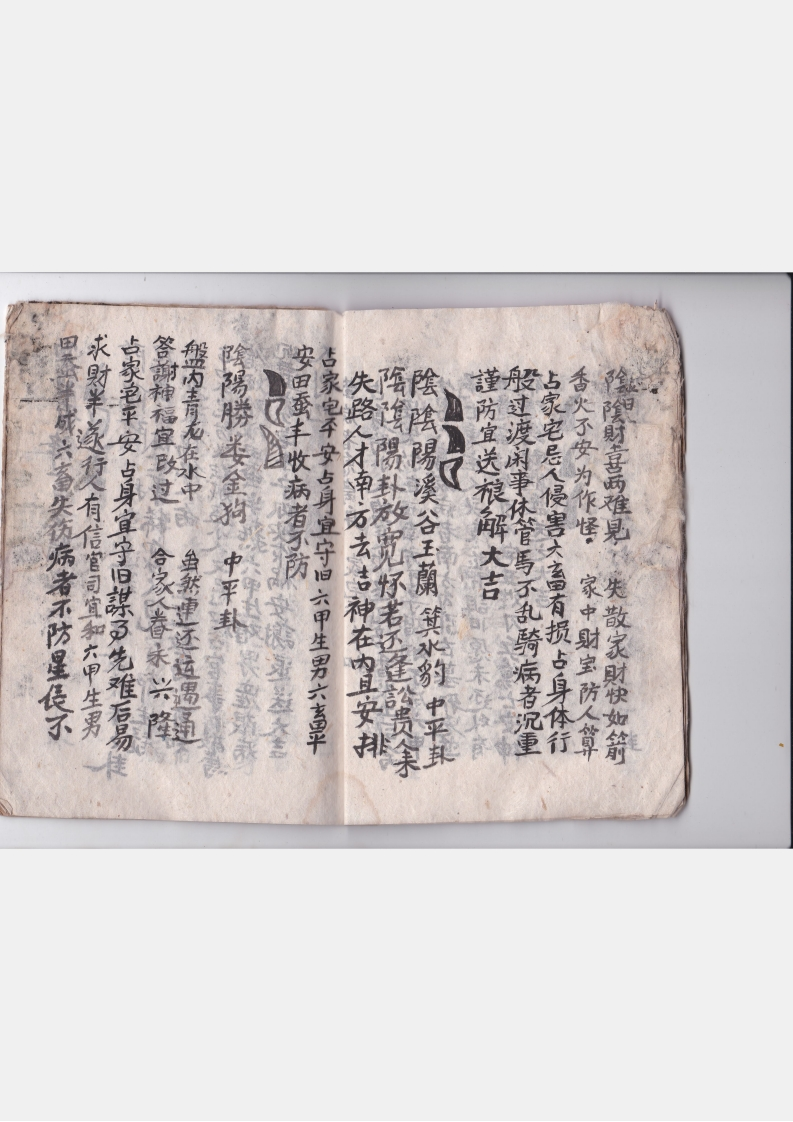 陰陰財喜两难見 失散家財快如箭
香火不安为作怪 家中財宝防人算
占家宅忌人侵害六畜有损占身体行
般过渡闲事休管馬不乱騎病者沉重
謹防宜送狼解大吉
陰陰陽溪谷王蘭 箕水豹 中平卦
陰陰陽卦放宽怀若还逢訟贵人来
失路人才南方去吉神在内且安排
占家宅平安占身宜守旧六甲生男六畜平
安田蚕丰收病者不防
陰陽勝娄金狗 中平卦
盤内青龙在水中 虽然運还运遇通
答謝神福宜改过 合家人眷永兴隆
占家宅平安占身宜守旧謀事先难后易
求財半遂行人有信官司宜和六甲生男
田蚕半成六畜失伤病者不防星辰不